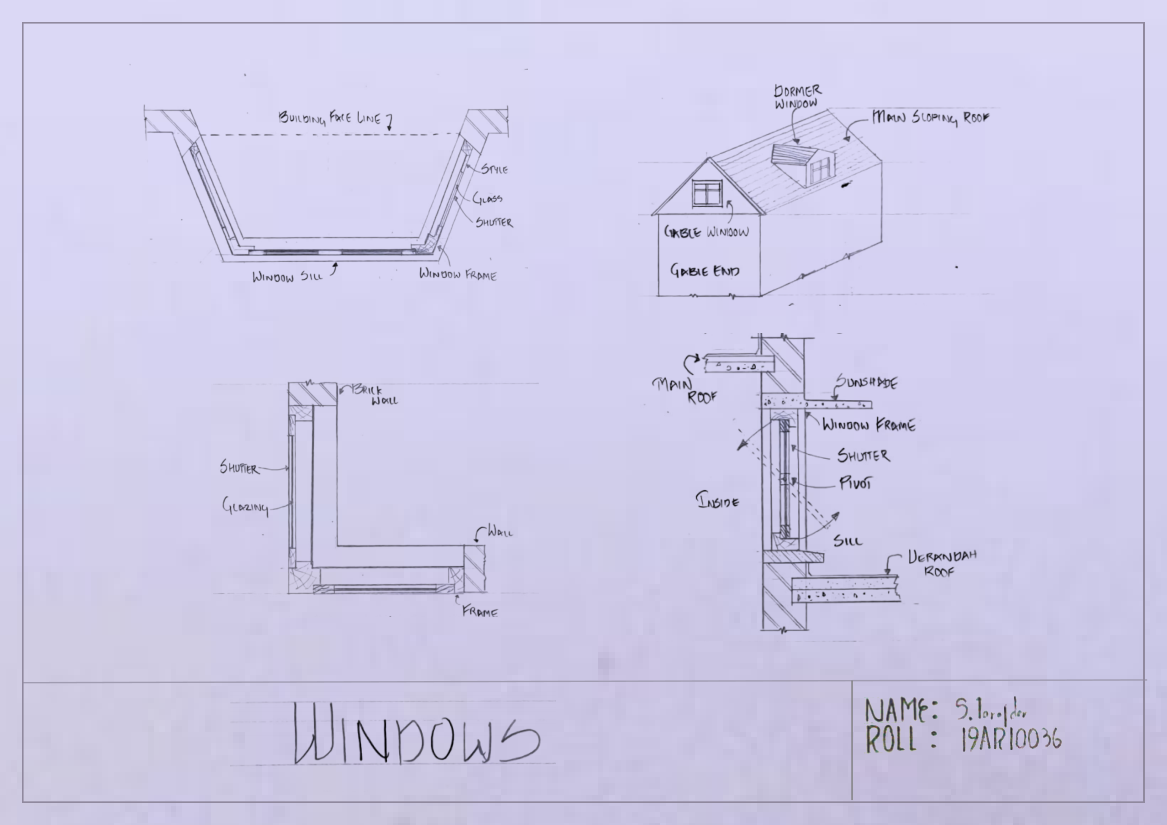 BUILDING FACE LINE
STYLE
GLASS
SHUTTER
WINDOW SILL
WINDOW FRAME
DORMER
WINDOW
MAIN SLOPING ROOF
GABLE WINDOW
GABLE END
BRICK
WALL
SHUTTER
GLAZING
WALL
FRAME
MAIN
ROOF
SUNSHADE
WINDOW FRAME
SHUTTER
PIVOT
INSIDE
SILL
VERANDAH
ROOF
WINDOWS
NAME: S.
ROLL : 19AR10036